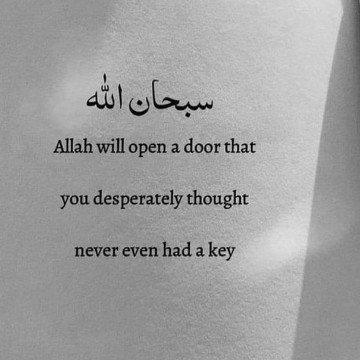 سبحان الله
Allah will open a door that
you desperately thought
never even had a key